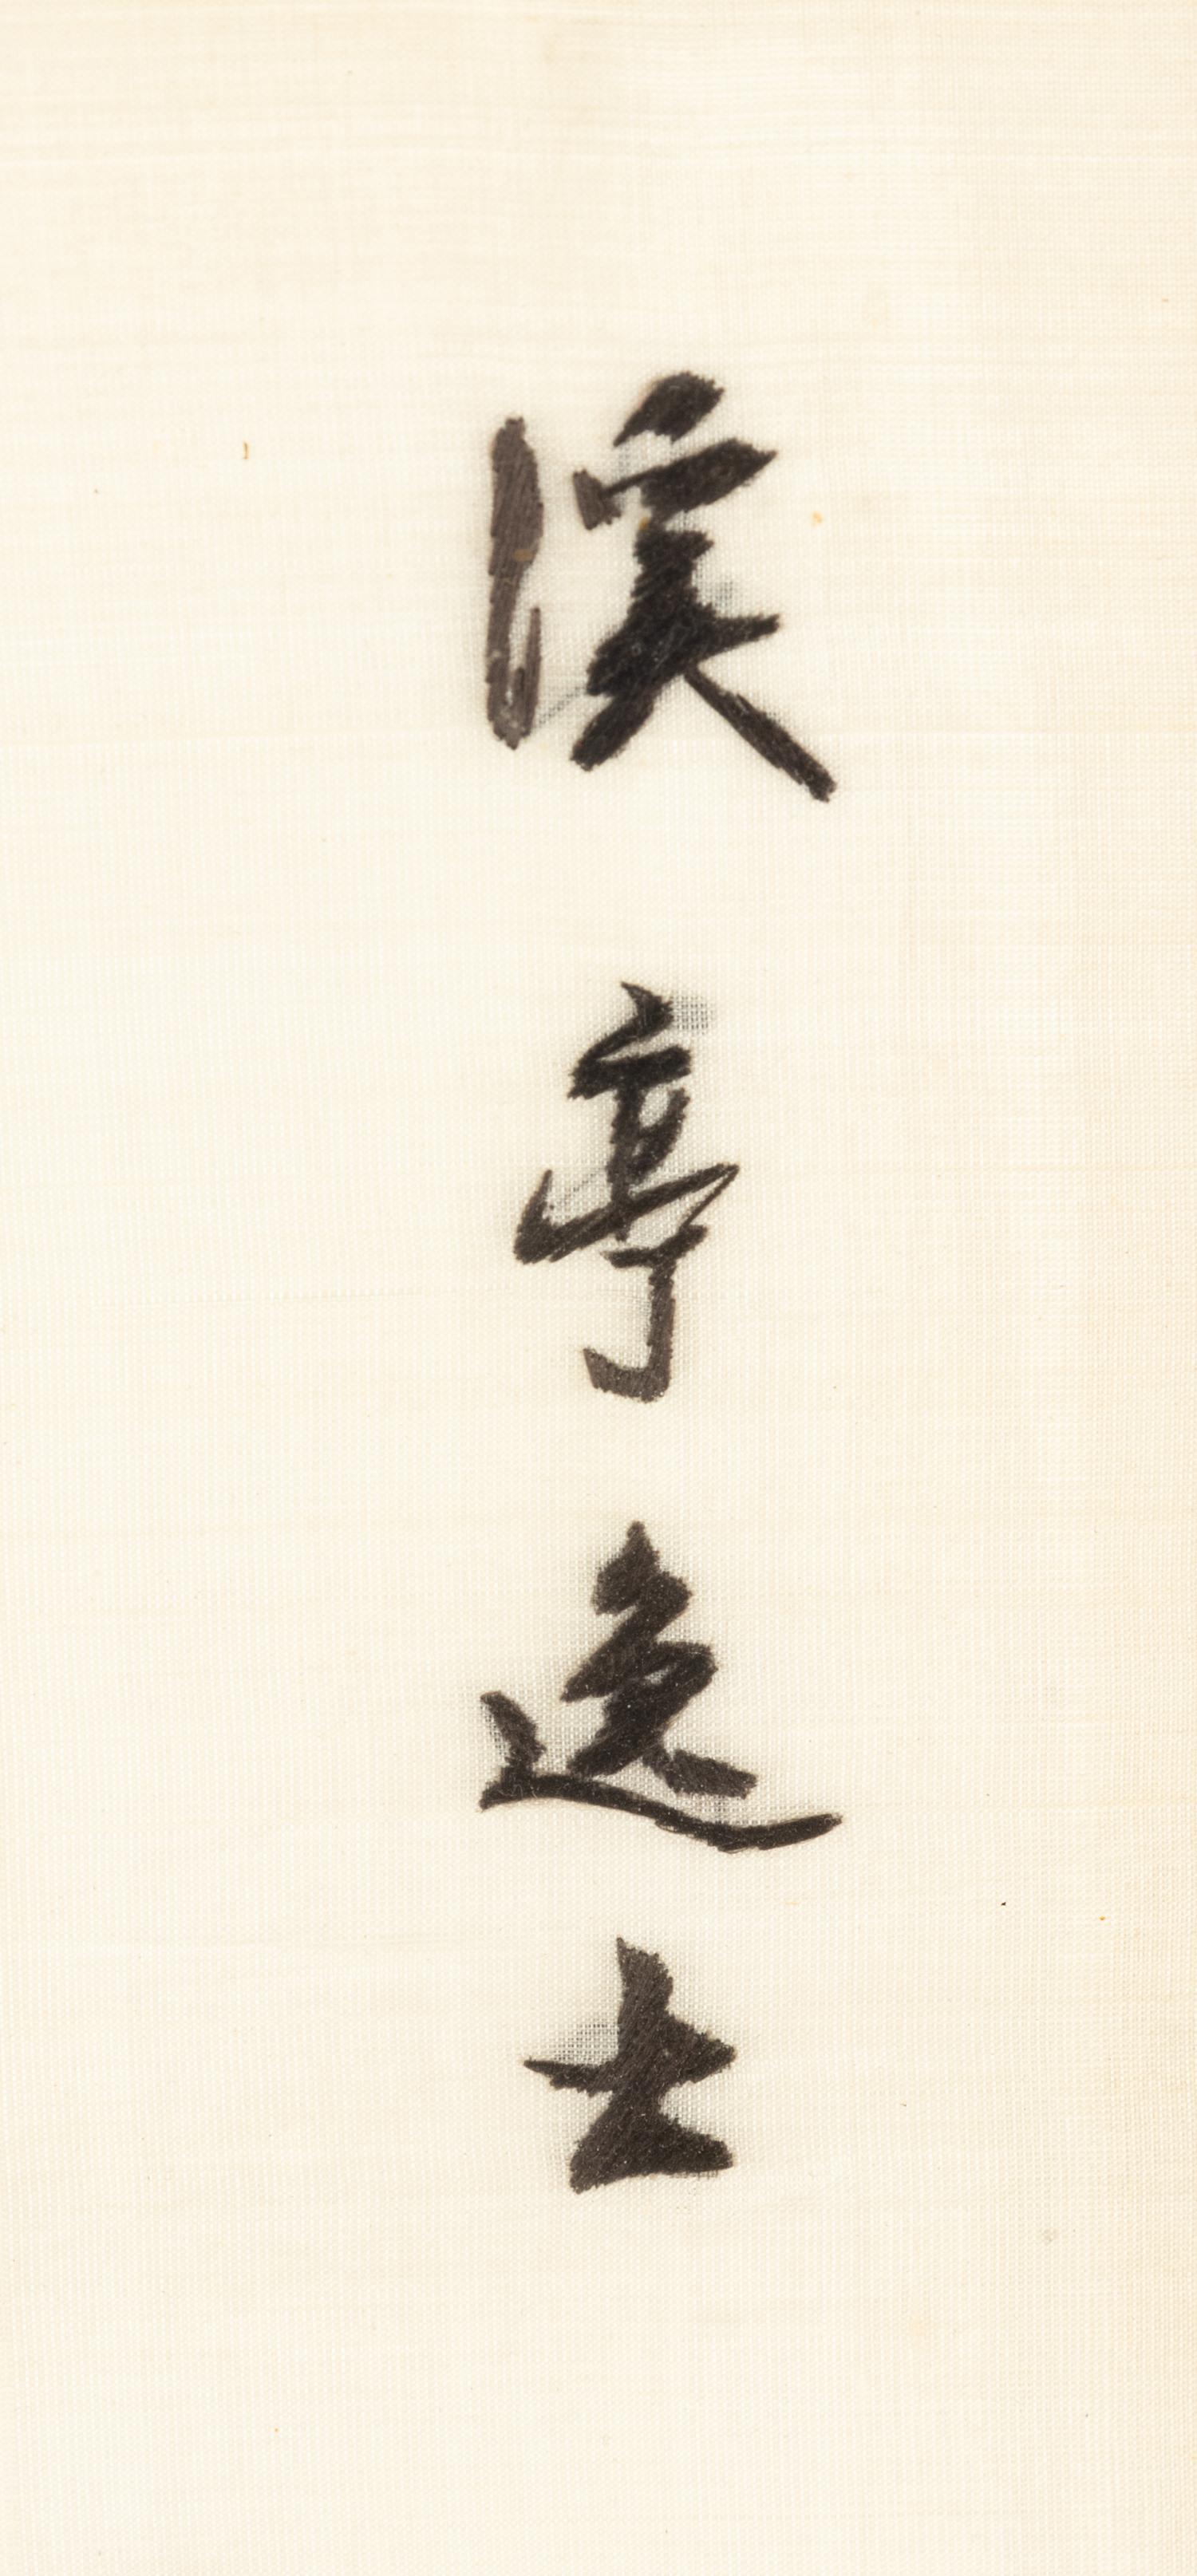 溪亭逸士